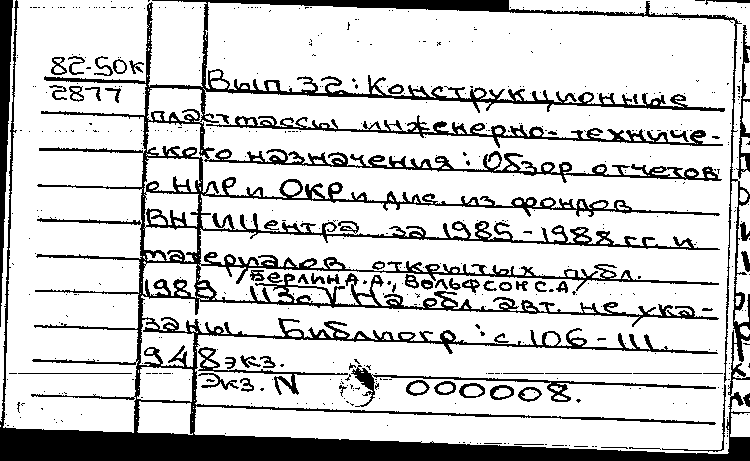 82-50к
2877
Вып. 32: Конструкционные
пластмассы инженерно-техниче-
ского назначения: Обзор отчетов
о НИР и ОКР и дис. из фондов
ВНТИЦентра за 1985-1988 гг. и
материалов открытых публ.
Берлин А.А., Вольфсон С.А.
1989. 113с. На обл. авт. не ука-
заны. Библиогр.: с. 106-111.
948 экз.
Экз. N 000008.